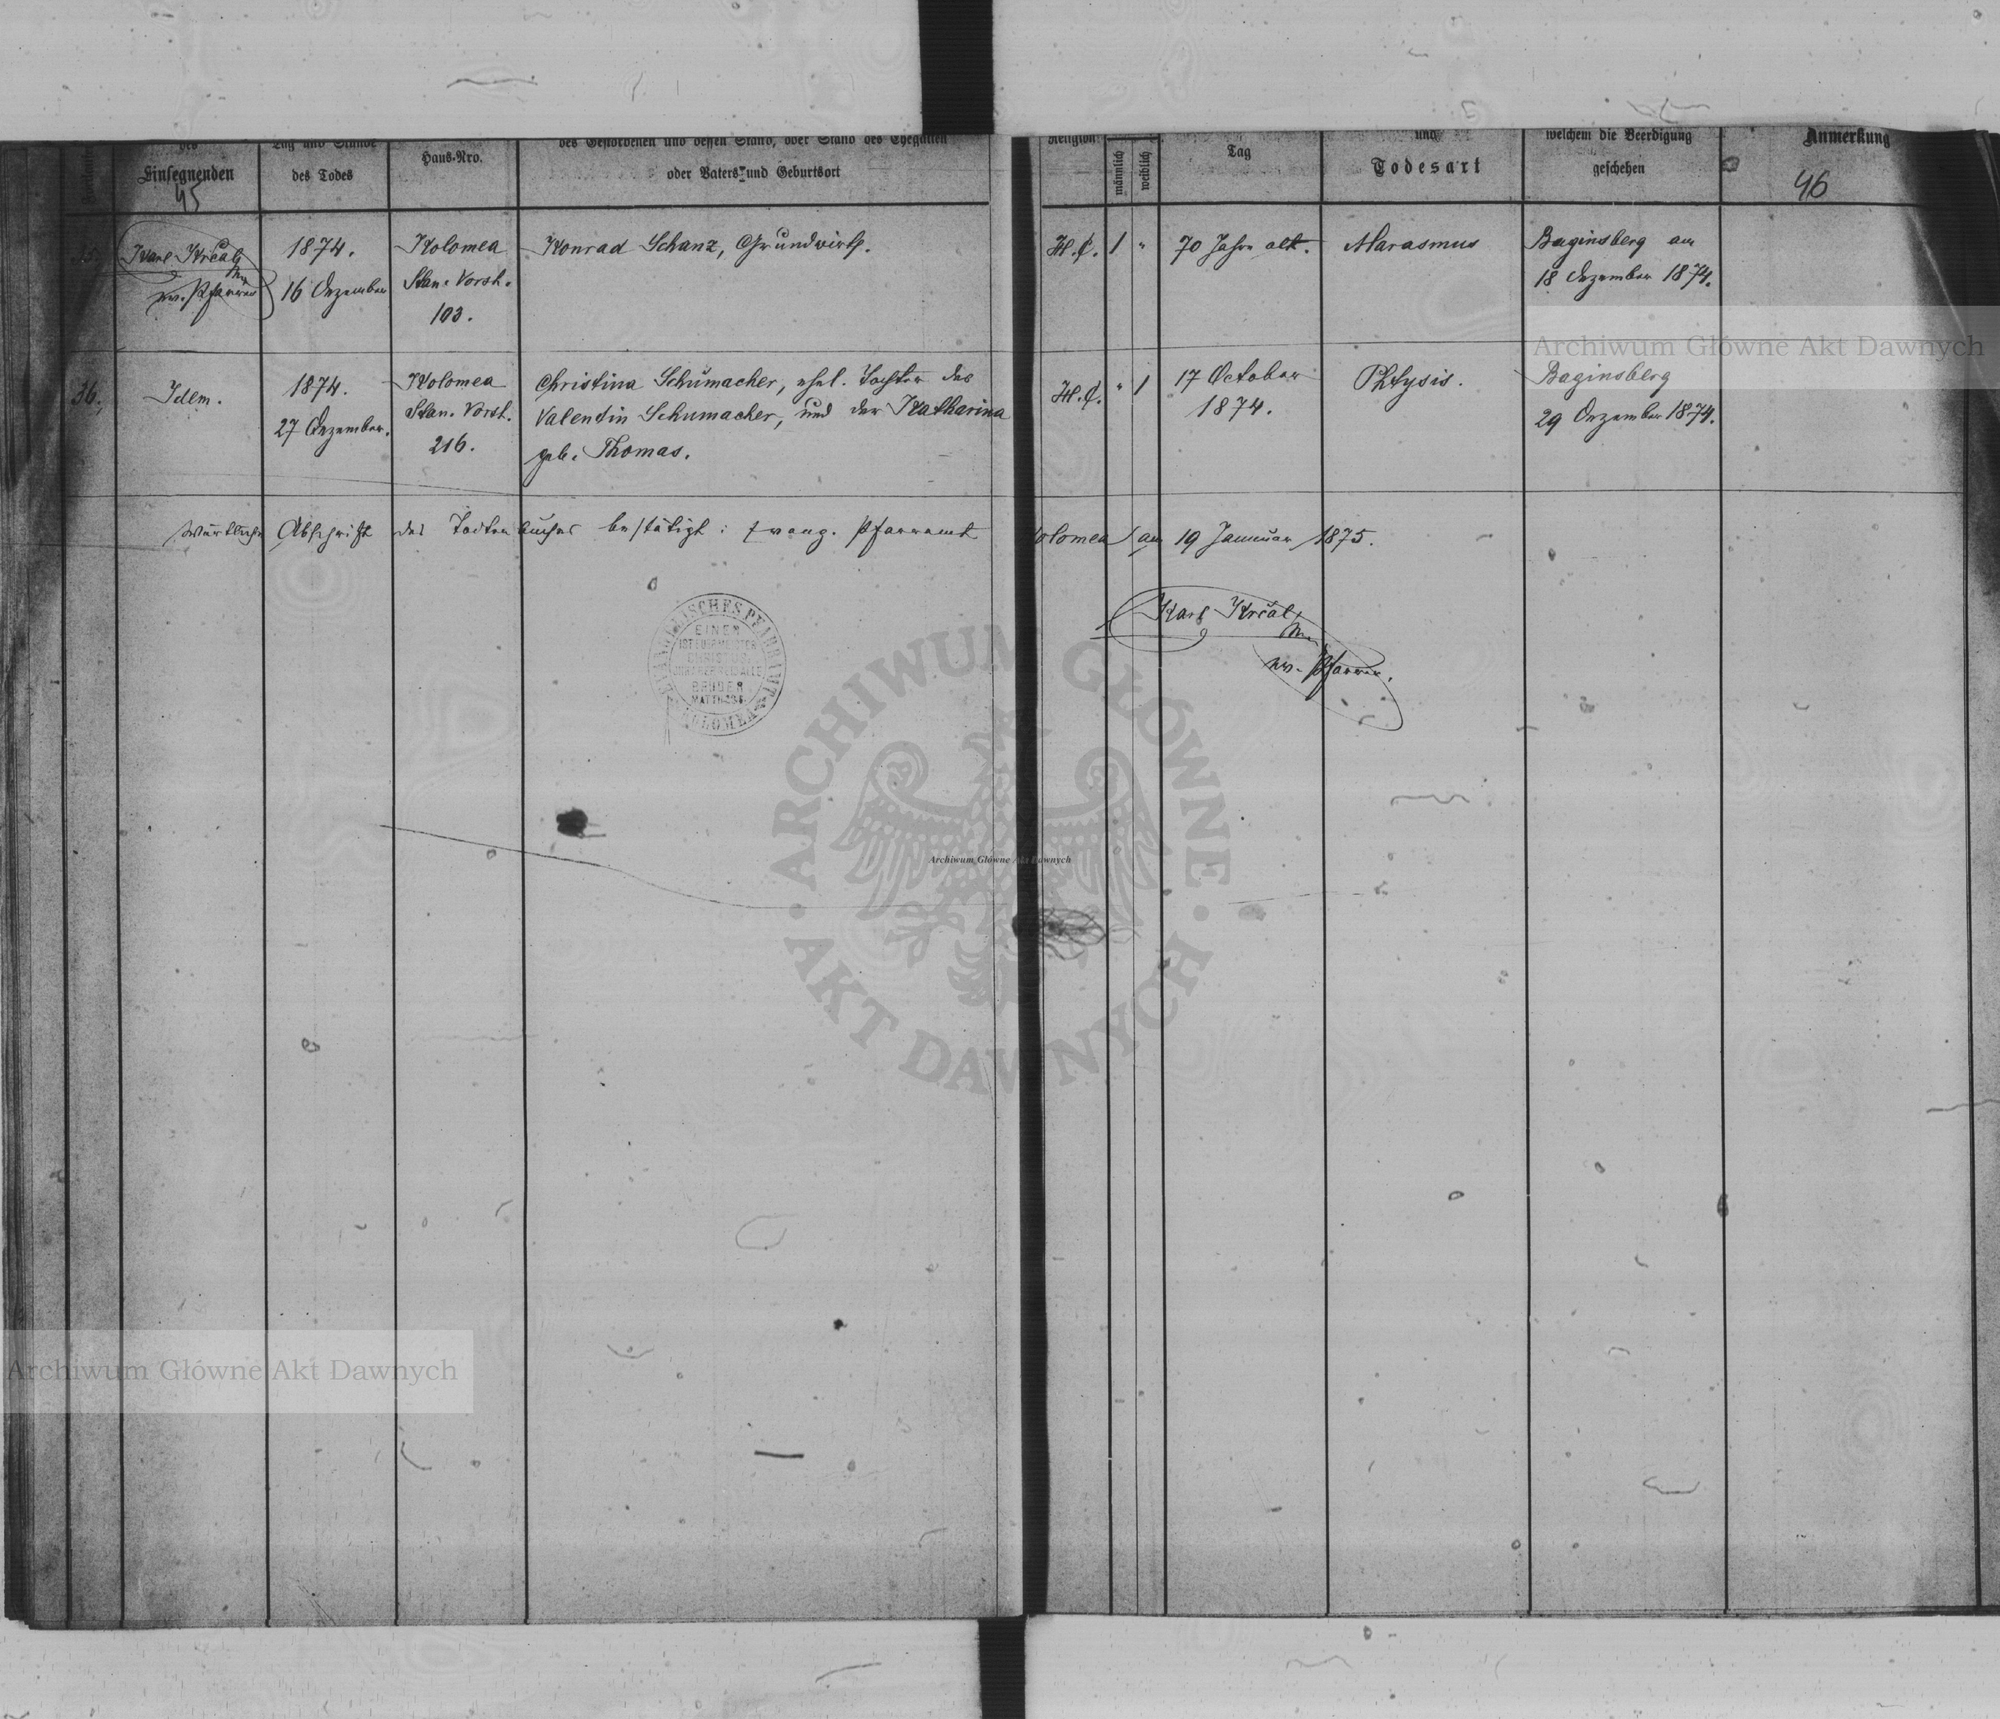 des
Einsegnenden
45
Tag und Stunde
des Todes
Haus-Nro.
des Gestorbenen und dessen Stand, oder Stand des Ehegatten
oder Vaters und Geburtsort
Religion
männlich
weiblich
Tag
und
Todesart
welchem die Beerdigung
geschehen
Anmerkung
46
Karl Krčal
ev. Pfarrer
1874.
16 Dezember
Kolomea
Stan. Vorst.
103.
Konrad Schanz, Grundwirth.
H. C. 1 "
70 Jahre alt.
Marasmus
Baginsberg am
18 Dezember 1874.
36.
Idem.
1874.
27 Dezember.
Kolomea
Stan. Vorst.
216.
Christina Schumacher, ehel. Tochter des
Valentin Schumacher, und der Katharina
geb. Thomas.
H. C. " 1
17 October
1874.
Phtysis.
Baginsberg
29 Dezember 1874.
Wörtliche Abschrift des Todtenbuches bestätigt: Evang. Pfarramt Kolomea am 19 Januar 1875.
Karl Krčal
ev. Pfarrer.
EVANGELISCHES PFARRAMT
KOLOMEA
EINER
IST EUER MEISTER
CHRISTUS
IHR ABER SEID ALLE
BRÜDER
MATTH. 23 8
Archiwum Główne Akt Dawnych
ARCHIWUM GŁÓWNE
AKT DAWNYCH
Archiwum Główne Akt Dawnych
Archiwum Główne Akt Dawnych